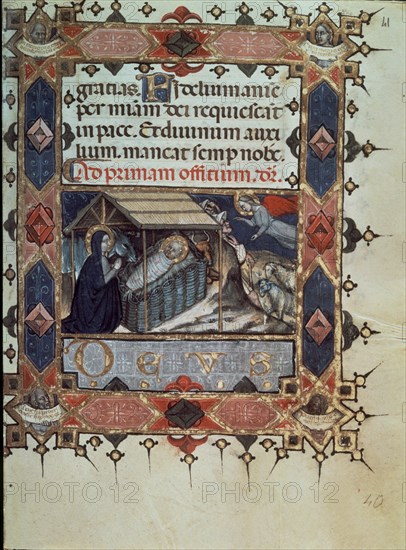 41
gratias. Fidelium anie
per miam dei requiescat
in pace. Et diuinum auxi
lium maneat semp nobc.
Ad primam officium. dr.
DEUS
40
PHOTO 12